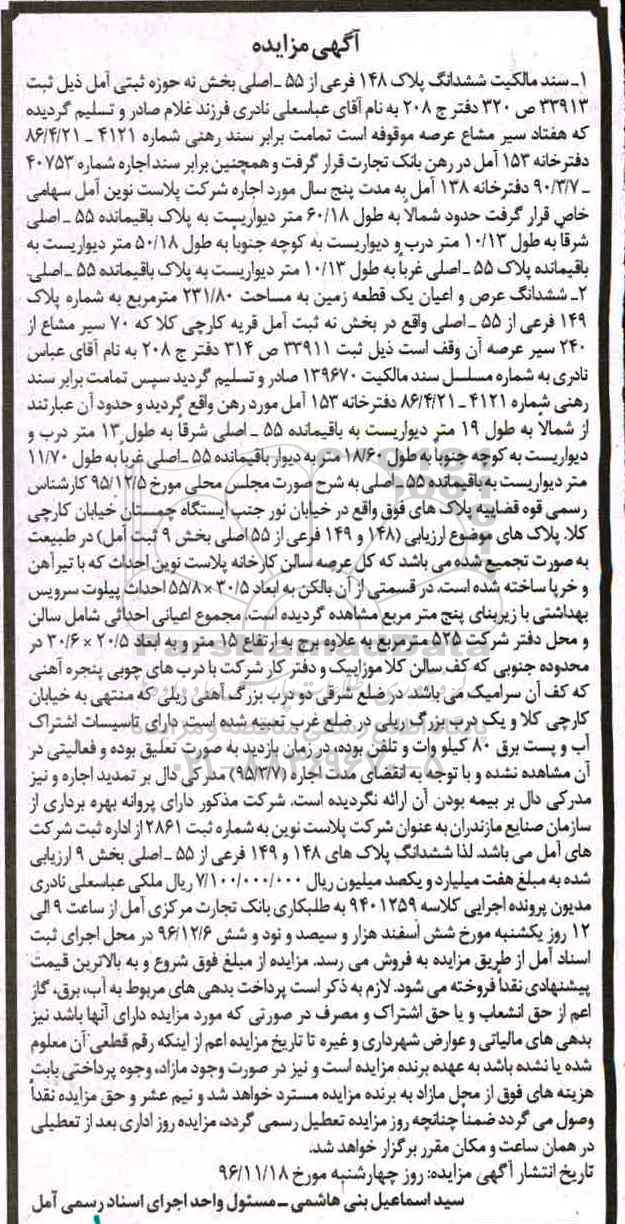 آگهی مزایده
۱ـ سند مالکیت ششدانگ پلاک ۱۴۸ فرعی از ۵۵ ـ اصلی بخش نه حوزه ثبتی آمل ذیل ثبت
۳۳۹۱۳ ص ۳۲۰ دفتر ج ۲۰۸ به نام آقای عباسعلی نادری فرزند غلام صادر و تسلیم گردیده
که هفتاد سیر مشاع عرصه موقوفه است تمامت برابر سند رهنی شماره ۴۱۲۱ ـ ۸۶/۴/۲۱
دفترخانه ۱۵۳ آمل در رهن بانک تجارت قرار گرفت و همچنین برابر سند اجاره شماره ۴۰۷۵۳
ـ ۹۰/۳/۷ دفترخانه ۱۳۸ آمل به مدت پنج سال مورد اجاره شرکت پلاست نوین آمل سهامی
خاص قرار گرفت حدود شمالاً به طول ۶۰/۱۸ متر دیواریست به پلاک باقیمانده ۵۵ ـ اصلی
شرقاً به طول ۱۰/۱۳ متر درب و دیواریست به کوچه جنوباً به طول ۵۰/۱۸ متر دیواریست به
باقیمانده پلاک ۵۵ ـ اصلی غرباً به طول ۱۰/۱۳ متر دیواریست به پلاک باقیمانده ۵۵ ـ اصلی.
۲ـ ششدانگ عرص و اعیان یک قطعه زمین به مساحت ۲۳۱/۸۰ مترمربع به شماره پلاک
۱۴۹ فرعی از ۵۵ ـ اصلی واقع در بخش نه ثبت آمل قریه کارچی کلا که ۷۰ سیر مشاع از
۲۴۰ سیر عرصه آن وقف است ذیل ثبت ۳۳۹۱۱ ص ۳۱۴ دفتر ج ۲۰۸ به نام آقای عباس
نادری به شماره مسلسل سند مالکیت ۱۳۹۶۷۰ صادر و تسلیم گردید سپس تمامت برابر سند
رهنی شماره ۴۱۲۱ ـ ۸۶/۴/۲۱ دفترخانه ۱۵۳ آمل مورد رهن واقع گردید و حدود آن عبارتند
از شمالاً به طول ۱۹ متر دیواریست به باقیمانده ۵۵ ـ اصلی شرقاً به طول ۱۳ متر درب و
دیواریست به کوچه جنوباً به طول ۱۸/۶۰ متر به دیوار باقیمانده ۵۵ ـ اصلی غرباً به طول ۱۱/۷۰
متر دیواریست به باقیمانده ۵۵ ـ اصلی به شرح صورت مجلس محلی مورخ ۹۵/۱۲/۵ کارشناس
رسمی قوه قضاییه پلاک های فوق واقع در خیابان نور جنب ایستگاه چمستان خیابان کارچی
کلا. پلاک های موضوع ارزیابی (۱۴۸ و ۱۴۹ فرعی از ۵۵ اصلی بخش ۹ ثبت آمل) در طبیعت
به صورت تجمیع شده می باشد که کل عرصه سالن کارخانه پلاست نوین احداث که با تیرآهن
و خرپا ساخته شده است. در قسمتی از آن بالکن به ابعاد ۳۰/۵ × ۵۵/۸ احداث پیلوت سرویس
بهداشتی با زیربنای پنج متر مربع مشاهده گردیده است. مجموع اعیانی احداثی شامل سالن
و محل دفتر شرکت ۵۲۵ متر مربع به علاوه برج به ارتفاع ۱۵ متر و به ابعاد ۲۰/۵ × ۳۰/۶ در
محدوده جنوبی که کف سالن کلا موزاییک و دفتر کار شرکت با درب های چوبی پنجره آهنی
که کف آن سرامیک می باشد. در ضلع شرقی دو درب بزرگ آهنی ریلی که منتهی به خیابان
کارچی کلا و یک درب بزرگ ریلی در ضلع غرب تعبیه شده است. دارای تاسیسات اشتراک
آب و پست برق ۸۰ کیلو وات و تلفن بوده، در زمان بازدید به صورت تعلیق بوده و فعالیتی در
آن مشاهده نشده و با توجه به انقضای مدت اجاره (۹۵/۳/۷) مدرکی دال بر تمدید اجاره و نیز
مدرکی دال بر بیمه بودن آن ارائه نگردیده است. شرکت مذکور دارای پروانه بهره برداری از
سازمان صنایع مازندران به عنوان شرکت پلاست نوین به شماره ثبت ۲۸۶۱ از اداره ثبت شرکت
های آمل می باشد. لذا ششدانگ پلاک های ۱۴۸ و ۱۴۹ فرعی از ۵۵ ـ اصلی بخش ۹ ارزیابی
شده به مبلغ هفت میلیارد و یکصد میلیون ریال ۷/۱۰۰/۰۰۰/۰۰۰ ریال ملکی عباسعلی نادری
مدیون پرونده اجرایی کلاسه ۹۴۰۱۲۵۹ به طلبکاری بانک تجارت مرکزی آمل از ساعت ۹ الی
۱۲ روز یکشنبه مورخ شش اسفند هزار و سیصد و نود و شش ۹۶/۱۲/۶ در محل اجرای ثبت
اسناد آمل از طریق مزایده به فروش می رسد. مزایده از مبلغ فوق شروع و به بالاترین قیمت
پیشنهادی نقداً فروخته می شود. لازم به ذکر است پرداخت بدهی های مربوط به آب، برق، گاز
اعم از حق انشعاب و یا حق اشتراک و مصرف در صورتی که مورد مزایده دارای آنها باشد نیز
بدهی های مالیاتی و عوارض شهرداری و غیره تا تاریخ مزایده اعم از اینکه رقم قطعی آن معلوم
شده یا نشده باشد به عهده برنده مزایده است و نیز در صورت وجود مازاد، وجوه پرداختی بابت
هزینه های فوق از محل مازاد به برنده مزایده مسترد خواهد شد و نیم عشر و حق مزایده نقداً
وصول می گردد ضمناً چنانچه روز مزایده تعطیل رسمی گردد، مزایده روز اداری بعد از تعطیلی
در همان ساعت و مکان مقرر برگزار خواهد شد.
تاریخ انتشار آگهی مزایده: روز چهارشنبه مورخ ۹۶/۱۱/۱۸
سید اسماعیل بنی هاشمی ـ مسئول واحد اجرای اسناد رسمی آمل